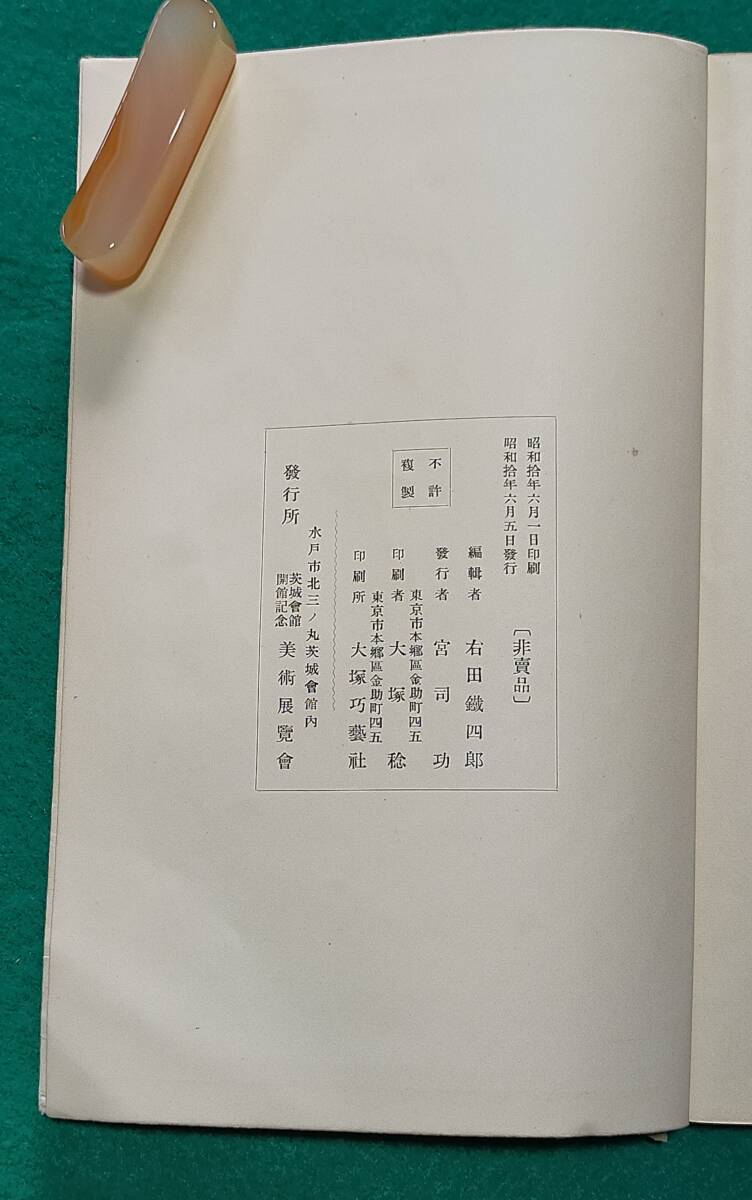 昭和拾年六月一日印刷
昭和拾年六月五日發行
〔非賣品〕
不許
複製
編輯者 右田鐵四郎
發行者 宮司功
東京市本鄕區金助町四五
印刷者 大塚稔
東京市本鄕區金助町四五
印刷所 大塚巧藝社
水戸市北三ノ丸茨城會館內
發行所 茨城會館
開館記念 美術展覽會